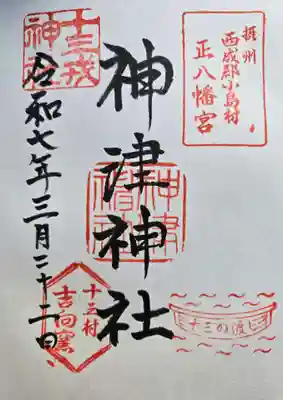 摂州
西成郡小島村
正八幡宮
神津神社
神津神社
十三の渡し
十三戎
神社
令和七年三月二十二日
十三村
吉向窯